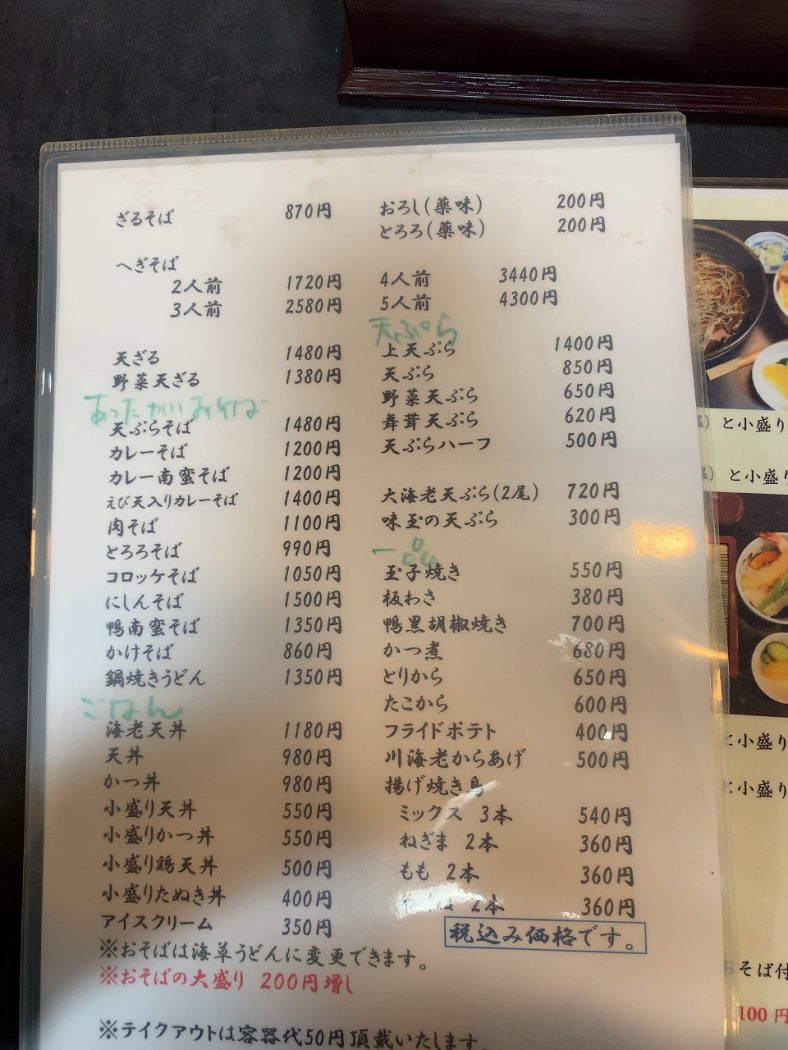 ざるそば 870円
へぎそば
2人前 1720円
3人前 2580円
天ざる 1480円
野菜天ざる 1380円
あったかいおそば
天ぷらそば 1480円
カレーそば 1200円
カレー南蛮そば 1200円
えび天入りカレーそば 1400円
肉そば 1100円
とろろそば 990円
コロッケそば 1050円
にしんそば 1500円
鴨南蛮そば 1350円
かけそば 860円
鍋焼きうどん 1350円
ごはん
海老天丼 1180円
天丼 980円
かつ丼 980円
小盛り天丼 550円
小盛りかつ丼 550円
小盛り鶏天丼 500円
小盛りたぬき丼 400円
アイスクリーム 350円
※おそばは海草うどんに変更できます。
※おそばの大盛り 200円増し
※テイクアウトは容器代50円頂戴いたします。
おろし(薬味) 200円
とろろ(薬味) 200円
4人前 3440円
5人前 4300円
天ぷら
上天ぷら 1400円
天ぷら 850円
野菜天ぷら 650円
舞茸天ぷら 620円
天ぷらハーフ 500円
大海老天ぷら(2尾) 720円
味玉の天ぷら 300円
一品
玉子焼き 550円
板わさ 380円
鴨黒胡椒焼き 700円
かつ煮 680円
とりから 650円
たこから 600円
フライドポテト 400円
川海老からあげ 500円
揚げ焼き鳥
ミックス 3本 540円
ねぎま 2本 360円
もも 2本 360円
2本 360円
税込み価格です。
と小盛り
と小盛り
と小盛り
と小盛り
おそば付
100円